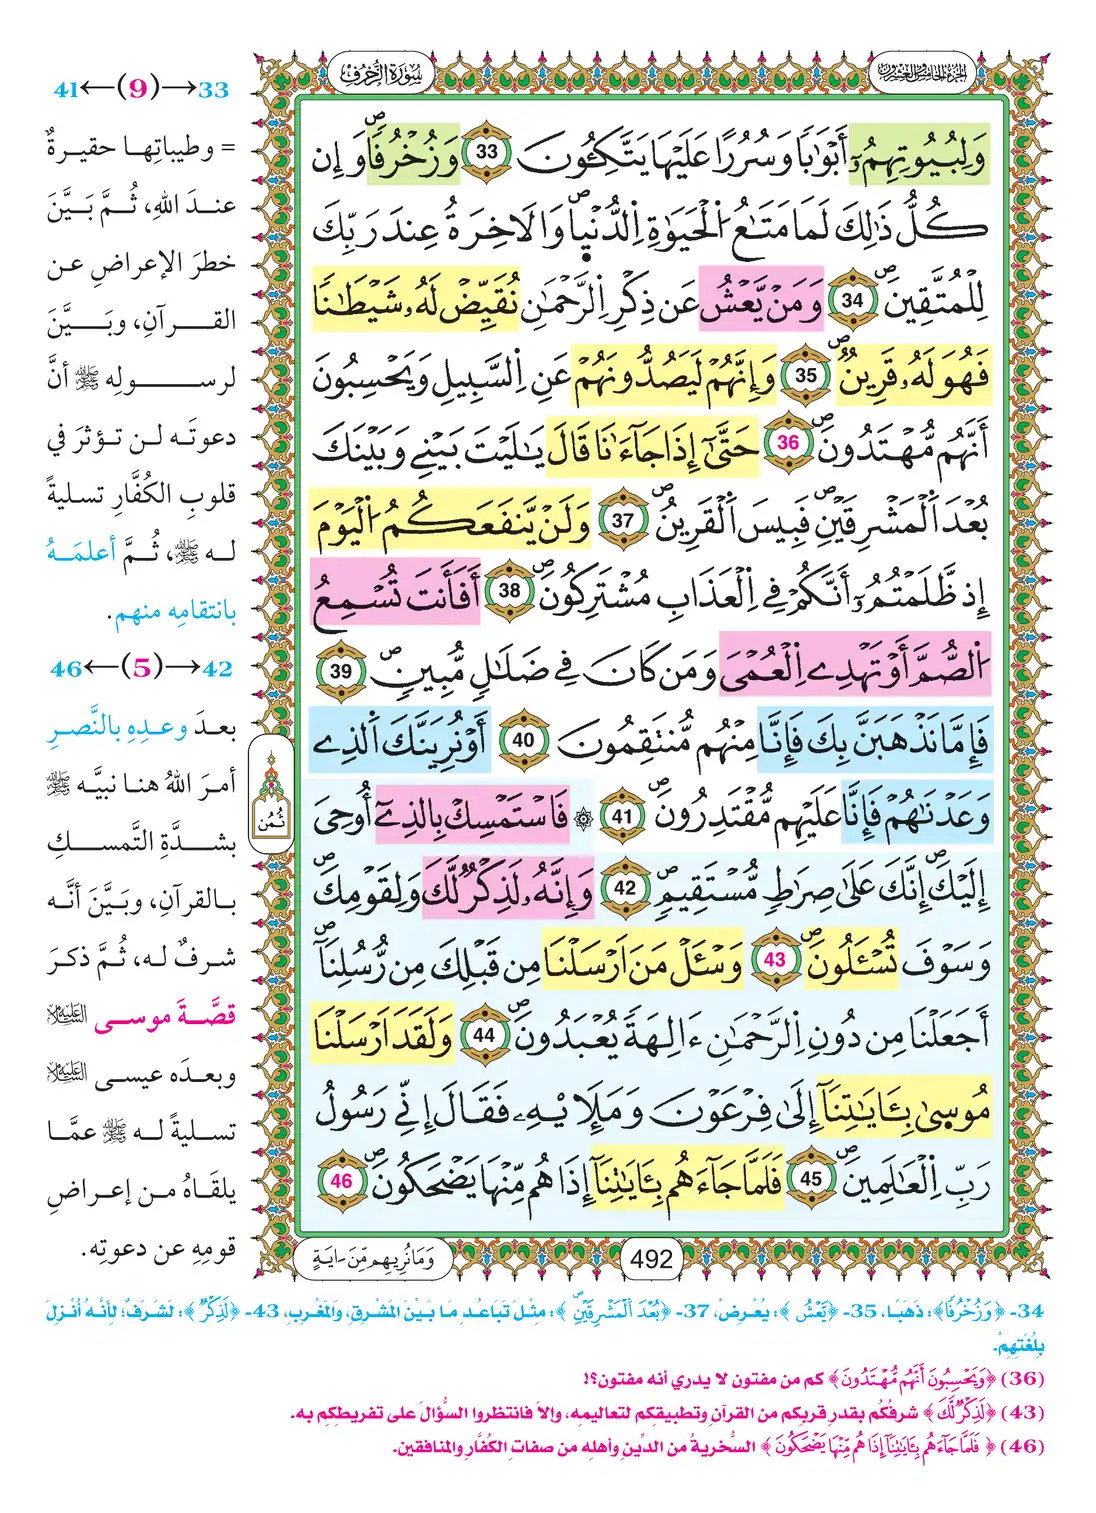 سُورَةُ الزُّخْرُفِ
الجزء الخامس والعشرون
وَلِبُيُوتِهِمُۥٓ أَبْوَٰبًا وَسُرُرًا عَلَيْهَا يَتَّكِـُٔونَ 33 وَزُخْرُفًا وَإِن
كُلُّ ذَٰلِكَ لَمَا مَتَٰعُ اُ۬لْحَيَوٰةِ اِ۬لدُّنْي۪ا وَالَاخِرَةُ عِندَ رَبِّكَ
لِلْمُتَّقِينَ 34 وَمَنْ يَّعْشُ عَن ذِكْرِ اِ۬لرَّحْمَٰنِ نُقَيِّضْ لَهُۥ شَيْطَٰنًا
فَهُوَ لَهُۥ قَرِينٌ 35 وَإِنَّهُمْ لَيَصُدُّونَهُمْ عَنِ اِ۬لسَّبِيلِ وَيَحْسِبُونَ
أَنَّهُم مُّهْتَدُونَ 36 حَتَّىٰٓ إِذَا جَآءَٰنَا قَالَ يَٰلَيْتَ بَيْنِے وَبَيْنَكَ
بُعْدَ اَ۬لْمَشْرِقَيْنِ فَبِيسَ اَ۬لْقَرِينُ 37 وَلَنْ يَّنفَعَكُمُ اُ۬لْيَوْمَ
إِذ ظَّلَمْتُمُۥٓ أَنَّكُمْ فِے اِ۬لْعَذَابِ مُشْتَرِكُونَ 38 أَفَأَنتَ تُسْمِعُ
اُ۬لصُّمَّ أَوْ تَهْدِے اِ۬لْعُمْىَ وَمَن كَانَ فِے ضَلَٰلٍ مُّبِينٍ 39
فَإِمَّا نَذْهَبَنَّ بِكَ فَإِنَّا مِنْهُم مُّنتَقِمُونَ 40 أَوْ نُرِيَنَّكَ اَ۬لذِے
وَعَدْنَٰهُمْ فَإِنَّا عَلَيْهِم مُّقْتَدِرُونَ 41 ۞ فَاسْتَمْسِكْ بِالذِےٓ أُوحِىَ
إِلَيْكَ إِنَّكَ عَلَىٰ صِرَٰطٍ مُّسْتَقِيمٍ 42 وَإِنَّهُۥ لَذِكْرٌ لَّكَ وَلِقَوْمِكَ
وَسَوْفَ تُسْـَٔلُونَ 43 وَسْـَٔلْ مَنَ اَرْسَلْنَا مِن قَبْلِكَ مِن رُّسُلِنَآ
أَجَعَلْنَا مِن دُونِ اِ۬لرَّحْمَٰنِ ءَالِهَةً يُعْبَدُونَ 44 وَلَقَدَ اَرْسَلْنَا
مُوس۪ىٰ بِـَٔايَٰتِنَآ إِلَىٰ فِرْعَوْنَ وَمَلَإِي۟هِۦ فَقَالَ إِنِّے رَسُولُ
رَبِّ اِ۬لْعَٰلَمِينَ 45 فَلَمَّا جَآءَهُم بِـَٔايَٰتِنَآ إِذَا هُم مِّنْهَا يَضْحَكُونَ 46
ثُمُن
492
وَمَا نُرِيهِم مِّنَ اٰيَةٍ
33→(9)←41
= وطيباتِها حقيرةٌ
عندَ اللهِ، ثُمَّ بَيَّنَ
خطرَ الإعراضِ عن
القرآنِ، وبَيَّنَ
لرسولِه ﷺ أنَّ
دعوتَه لن تؤثرَ في
قلوبِ الكُفَّارِ تسليةً
له ﷺ، ثُمَّ أعلمَهُ
بانتقامِه منهم.
42→(5)←46
بعدَ وعدِهِ بالنَّصرِ
أمرَ اللهُ هنا نبيَّه ﷺ
بشدَّةِ التَّمسكِ
بالقرآنِ، وبَيَّنَ أنَّه
شرفٌ له، ثُمَّ ذكرَ
قصَّةَ موسى عليه السلام
وبعدَه عيسى عليه السلام
تسليةً له ﷺ عمَّا
يلقَاهُ من إعراضِ
قومِهِ عن دعوتِه.
34- ﴿وَزُخْرُفًا﴾: ذَهَبًا، 35- ﴿يَّعْشُ﴾: يُعْرِضْ، 37- ﴿بُعْدَ اَ۬لْمَشْرِقَيْنِ﴾: مِثْلَ تَبَاعُدِ مَا بَيْنَ المَشْرِقِ، وَالمَغْرِبِ، 43- ﴿لَذِكْرٌ﴾: لَشَرَفٌ؛ لِأَنَّهُ أُنْزِلَ
بِلُغَتِهِمْ.
(36) ﴿وَيَحْسِبُونَ أَنَّهُم مُّهْتَدُونَ﴾ كم من مفتون لا يدري أنه مفتون؟!
(43) ﴿لَذِكْرٌ لَّكَ﴾ شرفُكُم بقدرِ قربِكم من القرآن وتطبيقكم لتعاليمه، وإلا فانتظروا السُّؤالَ على تفريطِكم به.
(46) ﴿فَلَمَّا جَآءَهُم بِـَٔايَٰتِنَآ إِذَا هُم مِّنْهَا يَضْحَكُونَ﴾ السُّخريةُ من الدِّينِ وأهلِه من صفاتِ الكُفَّارِ والمنافقين.